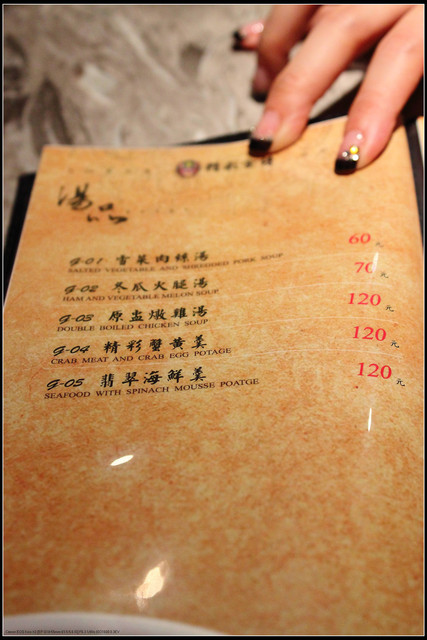 湯品
g-01 雪菜肉絲湯 60元
SALTED VEGETABLE AND SHREDDED PORK SOUP
g-02 冬瓜火腿湯 70元
HAM AND VEGETABLE MELON SOUP
g-03 原盅燉雞湯 120元
DOUBLE BOILED CHICKEN SOUP
g-04 精彩蟹黃羹 120元
CRAB MEAT AND CRAB EGG POTAGE
g-05 翡翠海鮮羹 120元
SEAFOOD WITH SPINACH MOUSSE POATGE